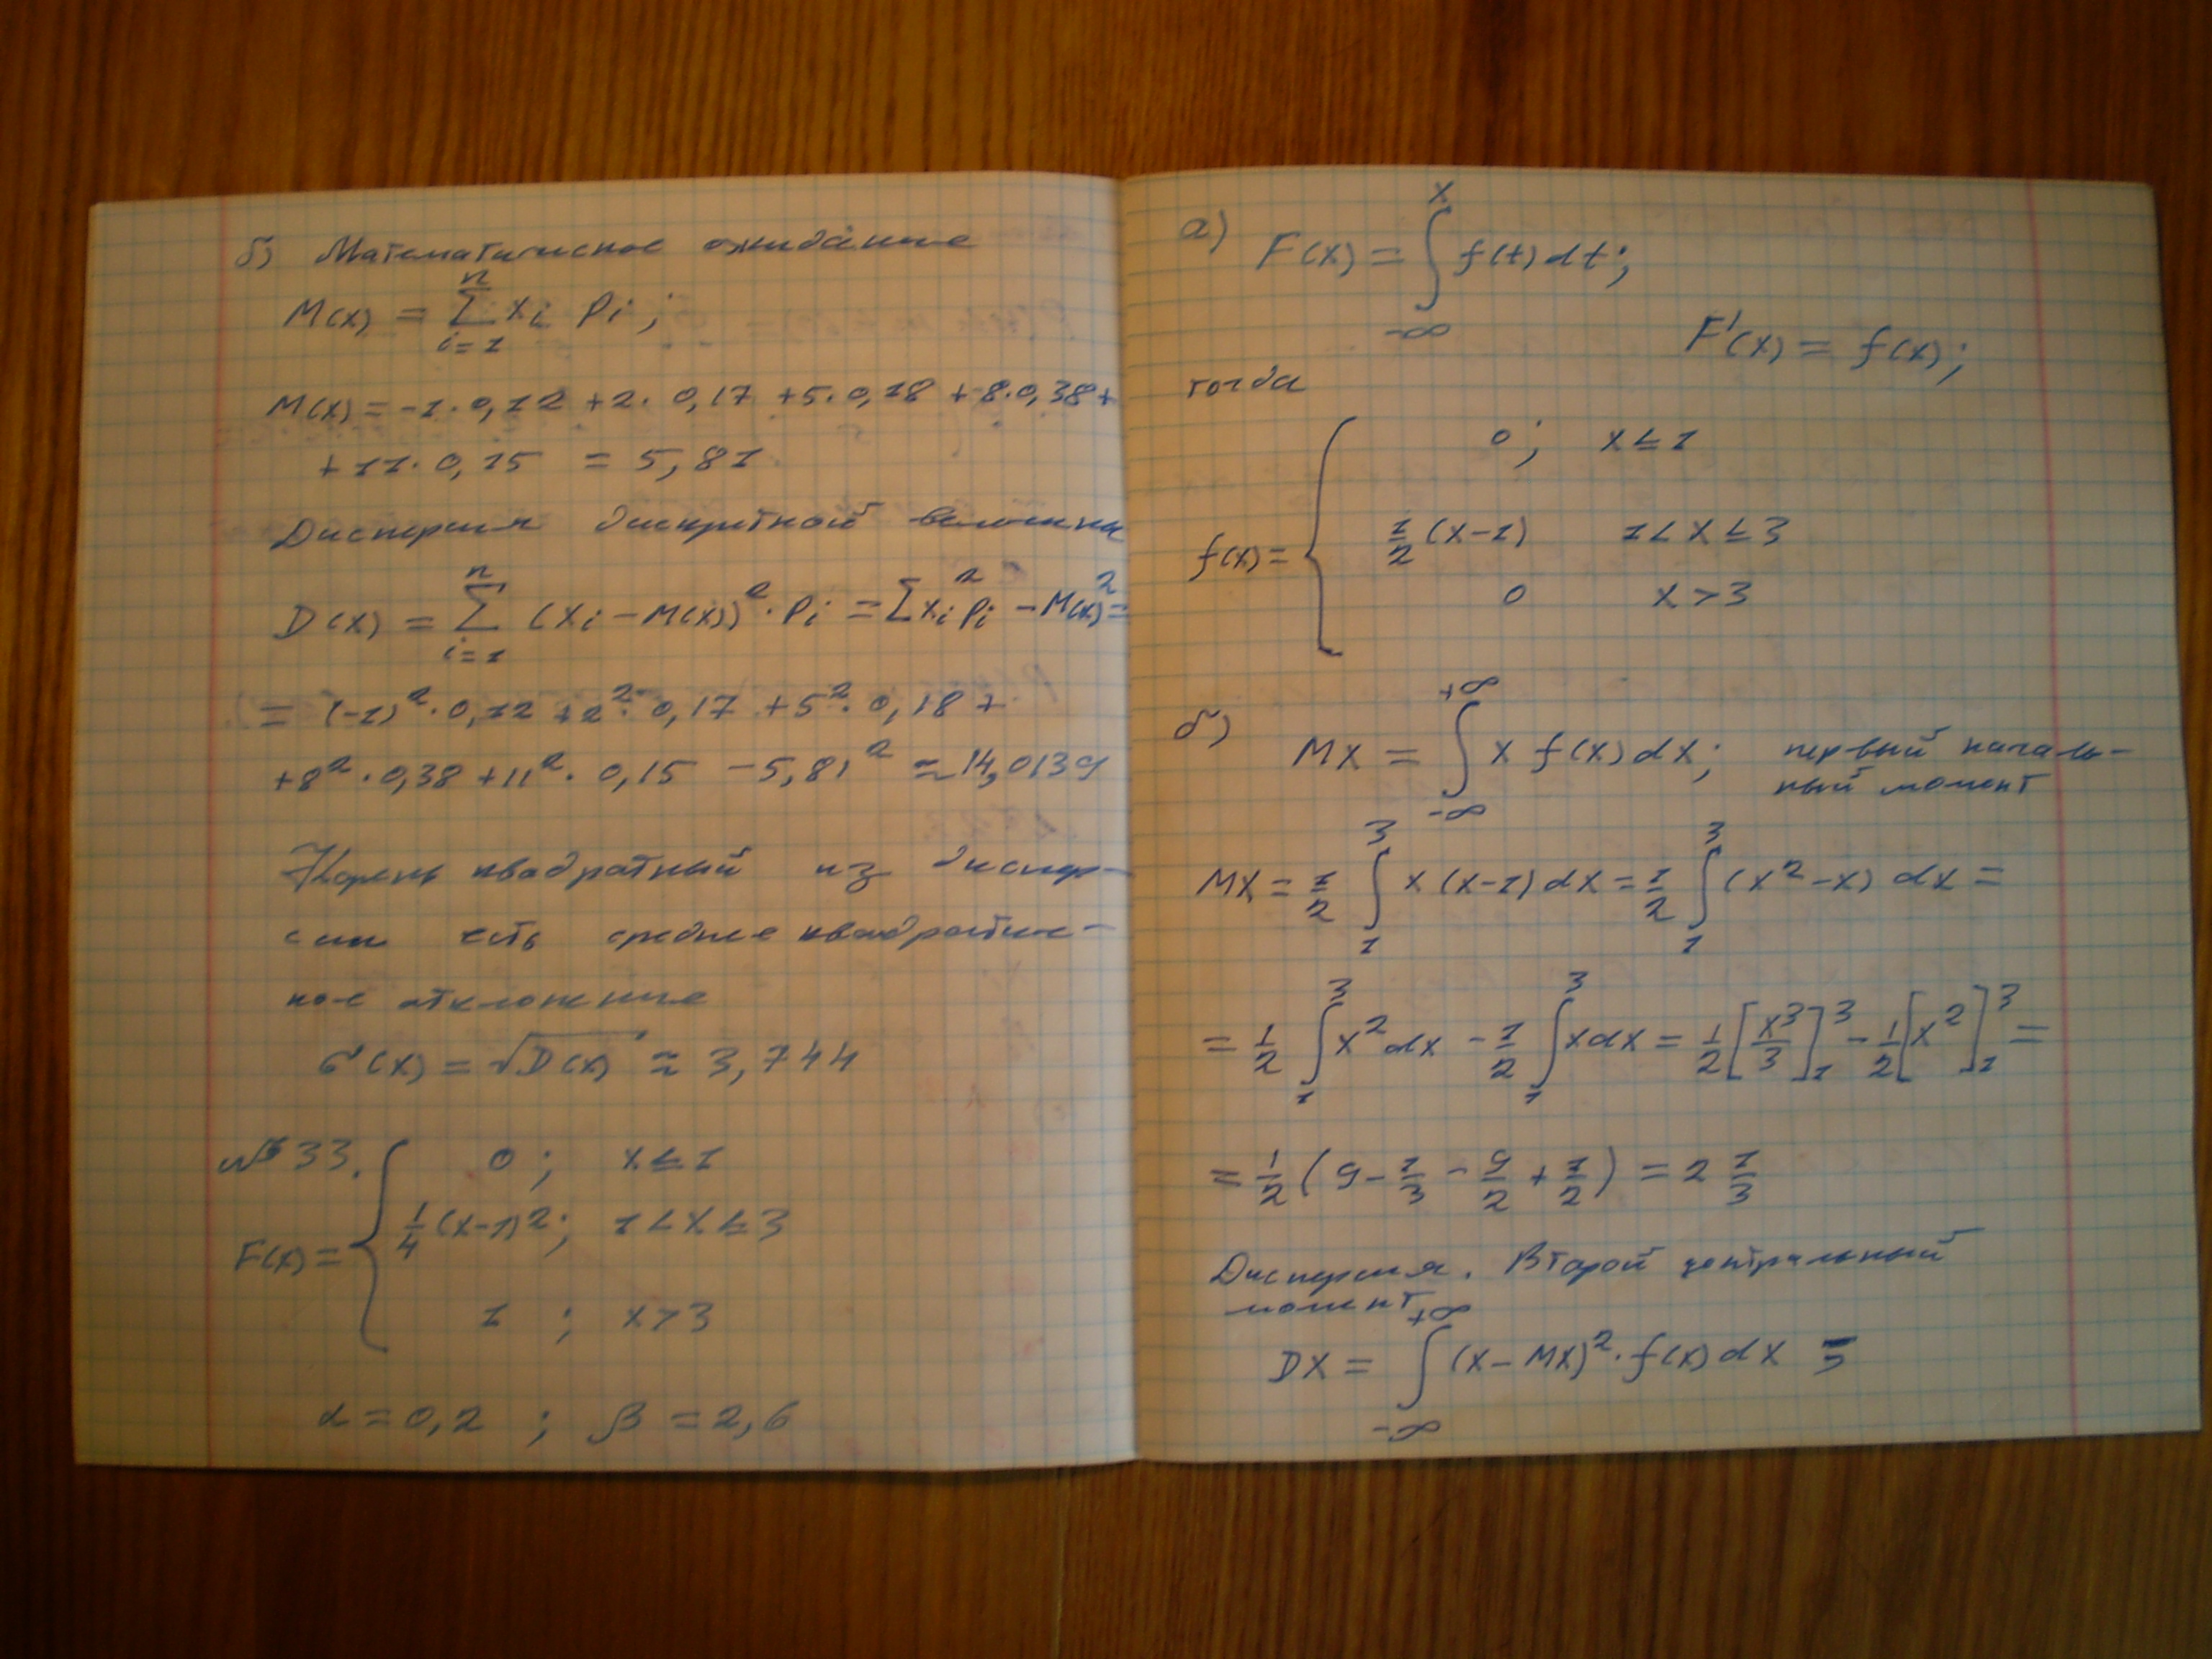 б) Математическое ожидание
M(x) = ∑_{i=1}^{n} x_i p_i ;
M(x) = -1·0,12 + 2·0,17 + 5·0,18 + 8·0,38 +
+ 11·0,15 = 5,81
Дисперсия дискретной величины
D(x) = ∑_{i=1}^{n} (x_i - M(x))^2 · p_i = ∑ x_i^2 p_i - M(x)^2 =
= (-1)^2 · 0,12 + 2^2 · 0,17 + 5^2 · 0,18 +
+ 8^2 · 0,38 + 11^2 · 0,15 - 5,81^2 ≈ 14,0139
Корень квадратный из диспер-
сии есть среднее квадратич-
ное отклонение
σ(x) = √D(x) ≈ 3,744
№33.
F(x) = { 0 ; x ≤ 1
1/4 (x-1)2 ; 1 < x ≤ 3
1 ; x > 3
α = 0,2 ; β = 2,6
а) F(x) = ∫_{-∞}^{x} f(t) dt ;
F'(x) = f(x) ;
тогда
f(x) = { 0 ; x ≤ 1
1/2 (x-1) 1 < x ≤ 3
0 x > 3
б) MX = ∫_{-∞}^{+∞} x f(x) dx ; первый началь-
ный момент
MX = 1/2 ∫_{1}^{3} x (x-1) dx = 1/2 ∫_{1}^{3} (x^2 - x) dx =
= 1/2 ∫_{1}^{3} x^2 dx - 1/2 ∫_{1}^{3} x dx = 1/2 [x^3/3]_{1}^{3} - 1/2 [x^2]_{1}^{3} =
= 1/2 (9 - 1/3 - 9/2 + 1/2) = 2 1/3
Дисперсия. Второй центральный
момент
DX = ∫_{-∞}^{+∞} (x - MX)^2 · f(x) dx =